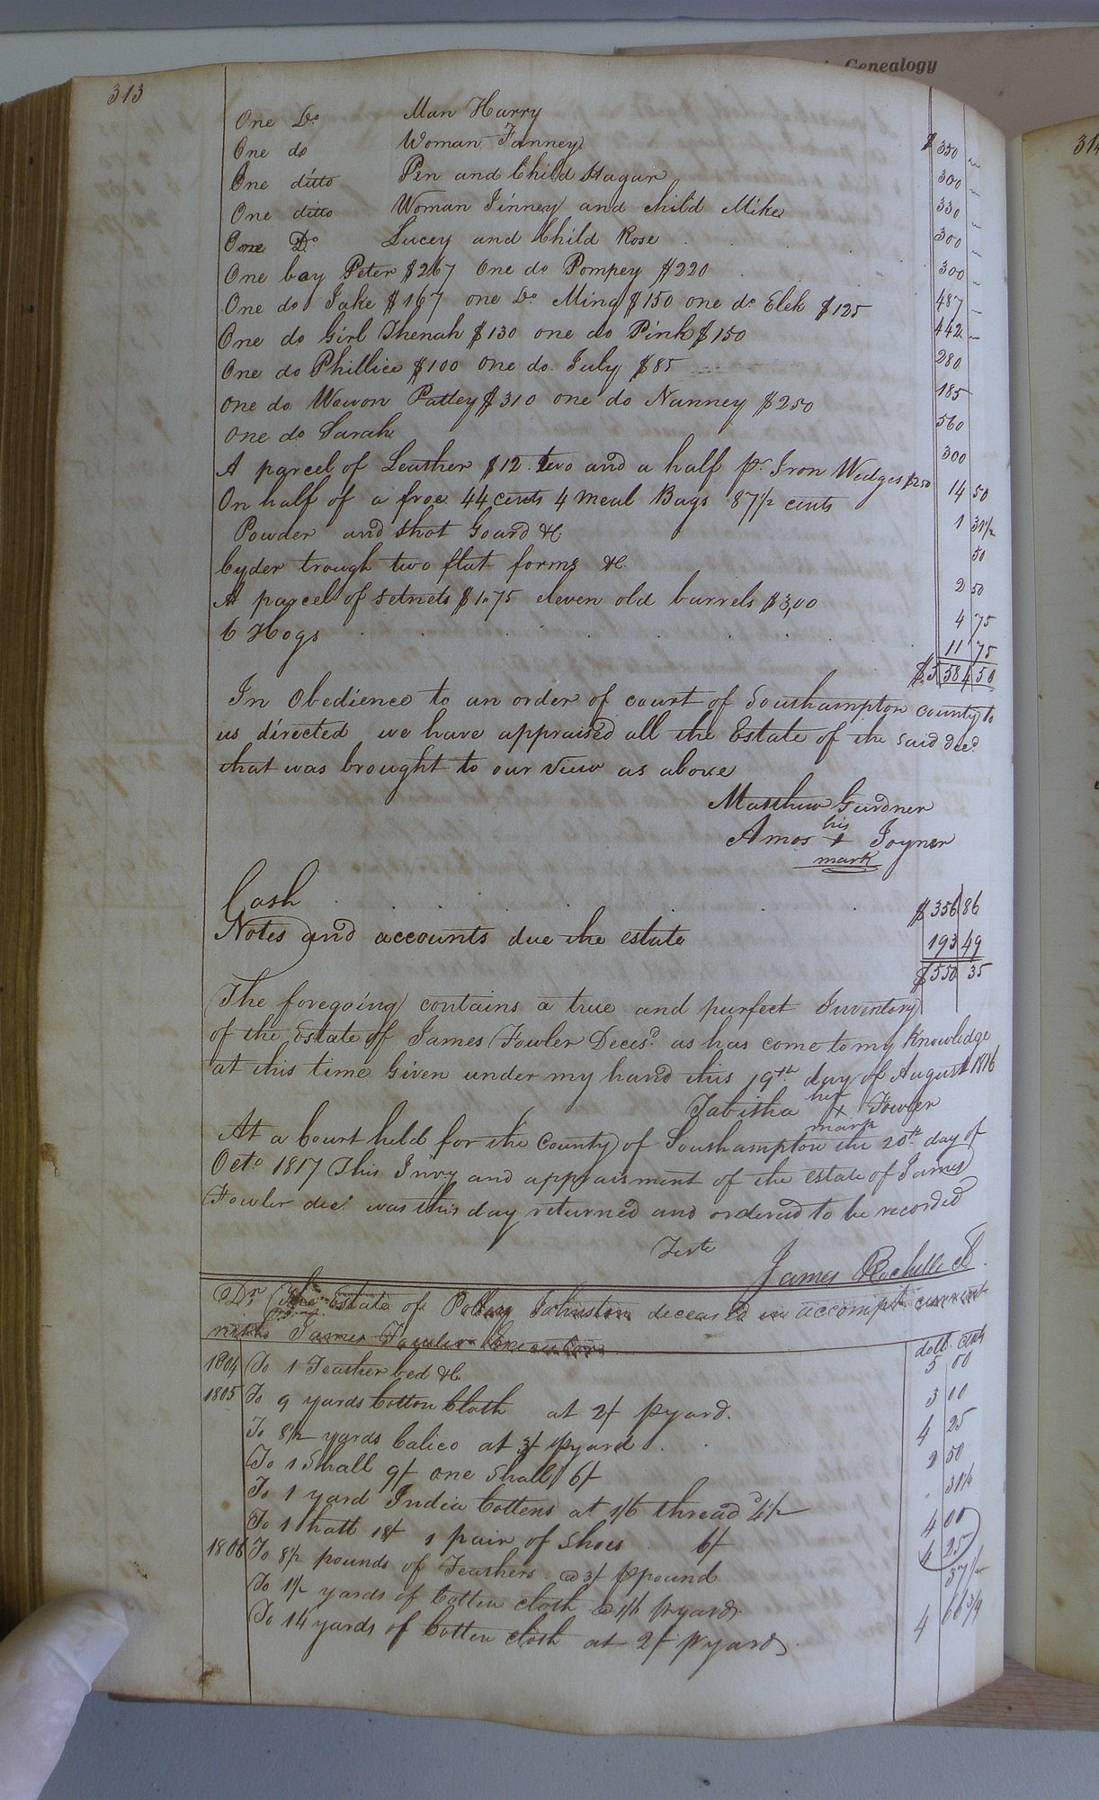 Genealogy
313
314
One Do Man Harry $ 350
One do Woman Fanney 300
One ditto Pen and Child Hagar 330
One ditto Woman Jinney and child Mike 300
One Do Lucey and Child Rose 300
One bay Peter $267 One do Pompey $220 487
One do Jake $167 one Do Ming $150 one do Elek $125 442
One do Girl Thenah $130 one do Pink $150 280
One do Phillice $100 one do July $85 185
One do Patley $310 one do Nanney $250 560
One do Sarah 300
A parcel of Leather $12. two and a half pr Iron Wedges $250 14 50
On half of a froe 44 cents 4 meal Bags 87½ cents 1 31½
Powder and shot Goard &C 50
Cyder trough two flat forms &C 2 50
A parcel of $1.75 eleven old barrels $3,00 4 75
6 Hogs 11 75
$5584 50
In Obedience to an order of court of Southampton county to
us directed we have appraised all the Estate of the said Decd
that was brought to our view as above
Matthew Gardner
his
Amos + Joyner
mark
Cash $356 86
Notes and accounts due the estate 193 49
$550 35
The foregoing contains a true and purfect Inventory
of the Estate of James Fowler Decesd as has come to my knowledge
at this time Given under my hand this 19th day of August 1816
her
Tabitha + Fowler
mark
At a Court held for the County of Southampton the 20th day of
Octo 1817 This Invy and appraisment of the estate of James
Fowler decd was this day returned and ordered to be recorded
Teste
James Rochelle Cl
Dr The Estate of Johnston deceased in accompt current
with James Fowler
doll cents
1804 To 1 Feather bed &C 5 00
1805 To 9 yards Cotton Cloth at 2/ pyard. 3 00
To 8½ yards Calico at 3/ pyard 4 25
To 1 Shall 9/ one Shall 6/ 2 50
To 1 yard India Cottens at 1/6 thread 4½ 31¼
To 1 hatt 18/ 1 pair of Shoes 6/ 4 00
1806 To 8½ pounds of Feathers @ 3/ ppound 4 25
To 1½ yards of Cotten cloth @ 1/6 pyard 37½
To 14 yards of Cotten cloth at 2/ pyard 4 66¾